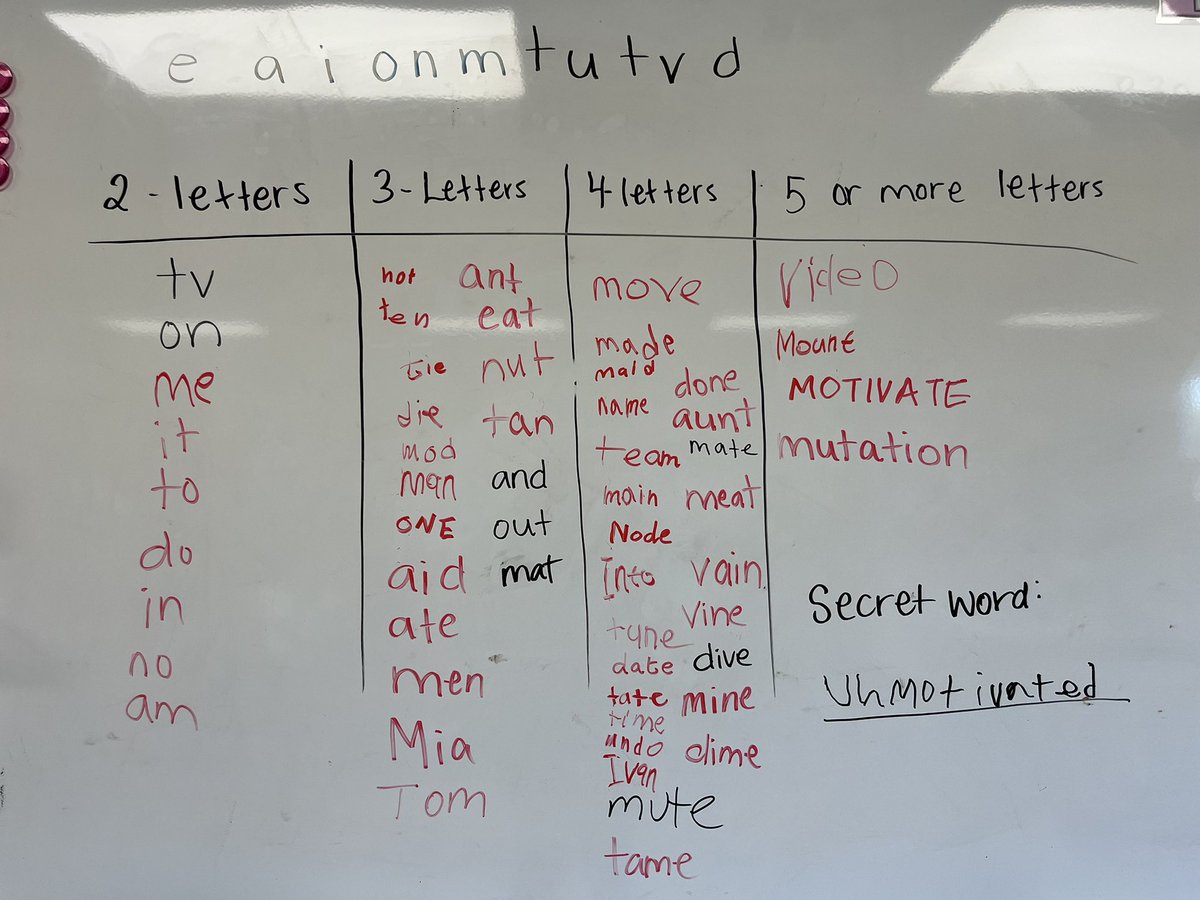 e a i o n m t u t v d
2 - letters
tv
on
me
it
to
do
in
no
am
3 - Letters
not ant
ten eat
tie nut
die tan
mod
man and
ONE out
aid mat
ate
men
Mia
Tom
4 letters
move
made
maid done
name aunt
team mate
main meat
Node
Into vain
tune vine
date dive
tate mine
time
undo dime
Ivan
mute
tame
5 or more letters
video
Mount
MOTIVATE
mutation
Secret word:
UnMotivated